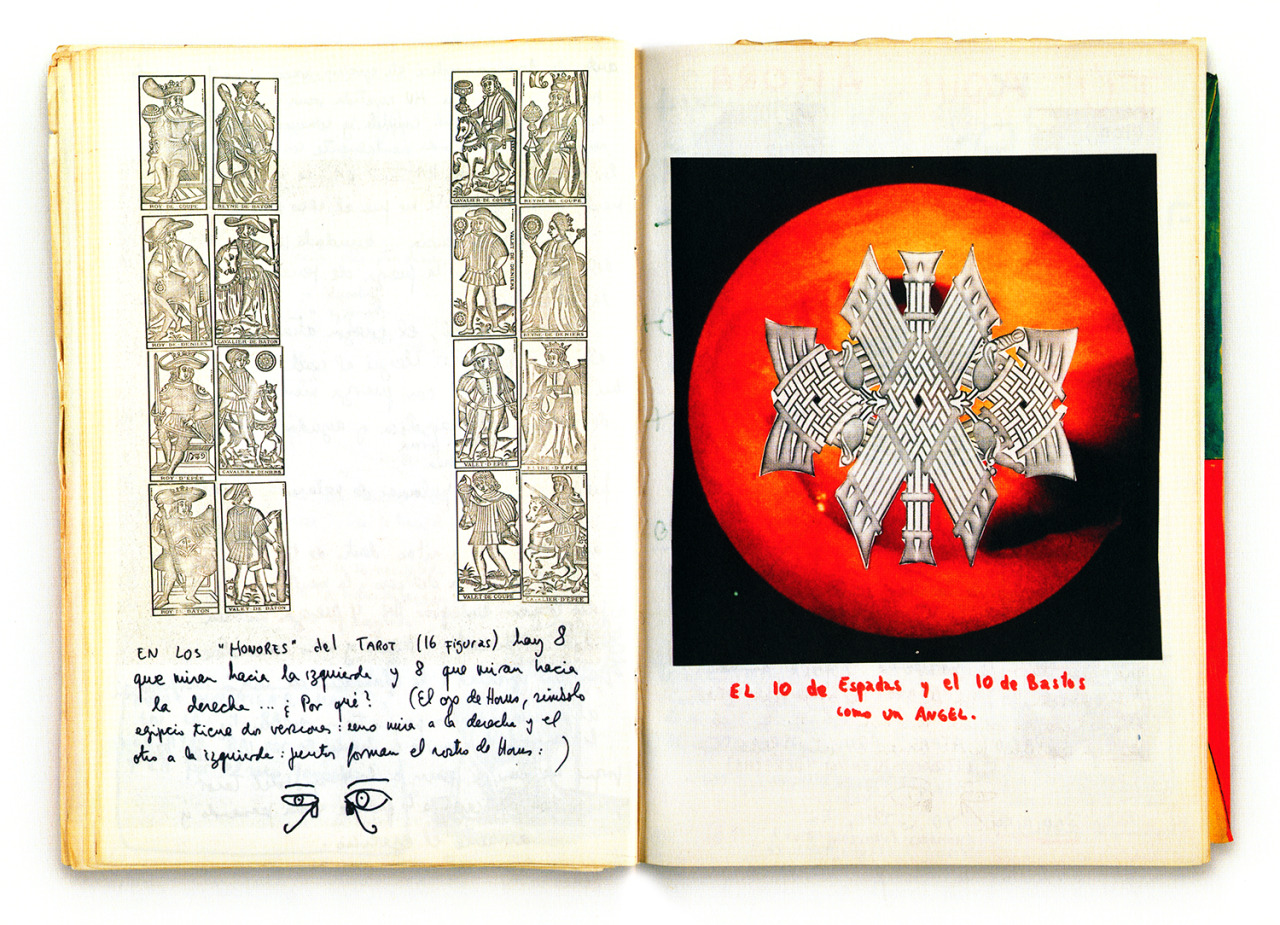 ROY DE COUPE
REYNE DE BATON
CAVALIER DE COUPE
REYNE DE COUPE
ROY DE DENIERS
CAVALIER DE BATON
VALET DE DENIERS
REYNE DE DENIERS
ROY D'EPÉE
CAVALIER DE DENIERS
VALET D'EPÉE
ROY DE BATON
VALET DE BATON
VALET DE COUPE
EN LOS "HONORES" del TAROT (16 Figuras) hay 8
que miran hacia la izquierda y 8 que miran hacia
la derecha ... ¿Por qué? (El ojo de Horus, símbolo
egipcio tiene dos versiones: uno mira a la derecha y el
otro a la izquierda: juntos forman el rostro de Horus: )
EL 10 de Espadas y el 10 de Bastos
como un ANGEL.